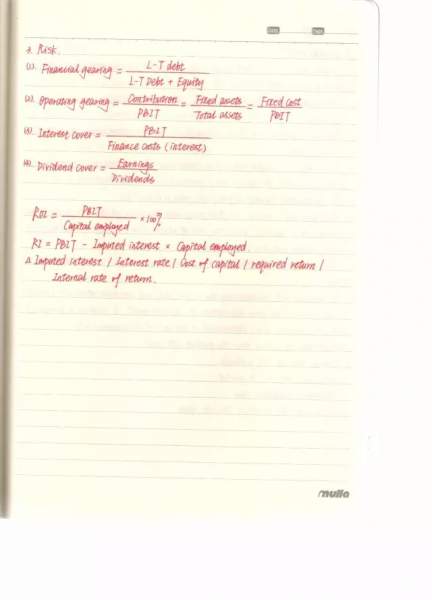 → Risk.
(1). Financial gearing = L-T debt / L-T Debt + Equity
(2). Operating gearing = Contribution / PBIT = Fixed assets / Total assets = Fixed cost / PBIT
(3). Interest cover = PBIT / Finance costs (interest)
(4). Dividend cover = Earnings / Dividends
ROI = PBIT / Capital employed × 100%
RI = PBIT - Imputed interest × Capital employed.
Δ Imputed interest / Interest rate / Cost of capital / required return /
Internal rate of return.